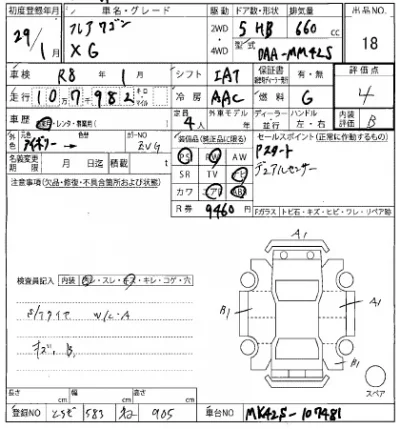 初度登録年月 車名・グレード 駆動 ドア数・形状 排気量 出品NO
29/1月 フレアワゴン XG 2WD・4WD 5 HB 660 cc 18
型式 DAA-MM42S
車検 R8年1月 シフト IAT 保証書 有・無 評価点
走行 107,982 冷房 AAC 燃料 G 4
車歴 レンタ・事業用 定員 4人 外車モデル 年 ディーラー 並行 ハンドル 左・右 内装評価 B
色 元色 アイボリー→ 色替 カラーNO ZVG
装備品(純正品に限る) セールスポイント(正常に作動するもの)
名義変更期限 月 日迄 積載 t
PS PW AW Pスタート
SR TV ナビ デュアルセンサー
カワ エアB ABS
R券 9460円
注意事項(欠品・修復・不具合箇所および状態)
Fガラス トビ石・キズ・ヒビ・ワレ・リペア跡
A1
B1 A1
B1
検査員記入 内装 ヨゴレ・スレ・キズ・キレ・コゲ・穴
S/タイヤ W/C・A
キズ、B,
スペア
長さ cm 幅 cm 高さ cm
登録NO 583 905 車台NO MM42S-107481